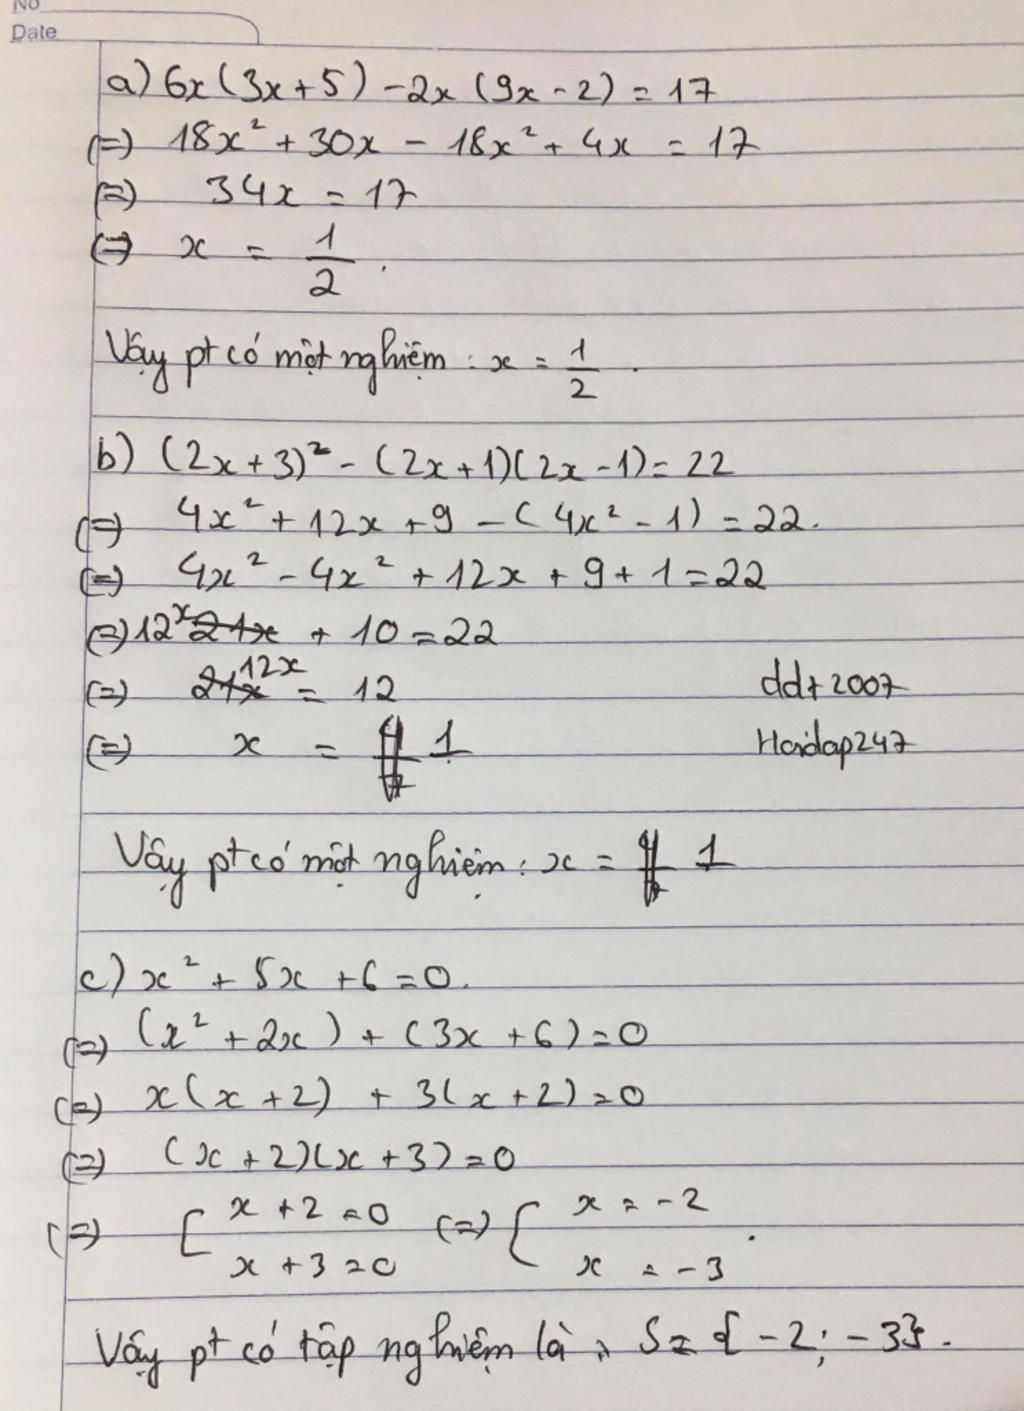 No
Date
a) 6x(3x+5) -2x(9x-2) = 17
(=) 18x² + 30x - 18x² + 4x = 17
(=) 34x = 17
(=) x = 1/2.
Vậy pt có một nghiệm : x = 1/2.
b) (2x+3)² - (2x+1)(2x-1) = 22
(=) 4x² + 12x + 9 - (4x² - 1) = 22.
(=) 4x² - 4x² + 12x + 9 + 1 = 22
(=) 12x + 10 = 22
(=) 12x = 12
ddt2007
(=) x = 1
Hoidap247
Vậy pt có một nghiệm : x = 1
c) x² + 5x + 6 = 0.
(=) (x² + 2x) + (3x + 6) = 0
(=) x(x+2) + 3(x+2) = 0
(=) (x+2)(x+3) = 0
(=) [ x + 2 = 0 (=) [ x = -2
x + 3 = 0 x = -3.
Vậy pt có tập nghiệm là : S = {-2; -3}.